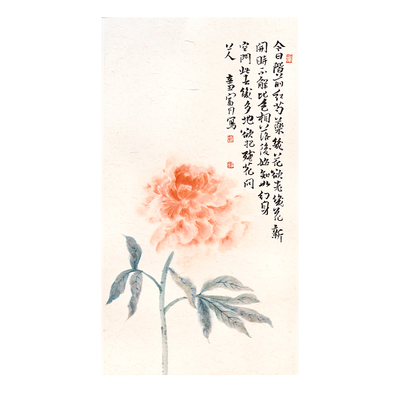 今日階前紅芍藥幾花欲老幾花新
開時不解比色相落後始知如幻身
空門此去幾多地欲把殘花問
上人 辛丑 寫